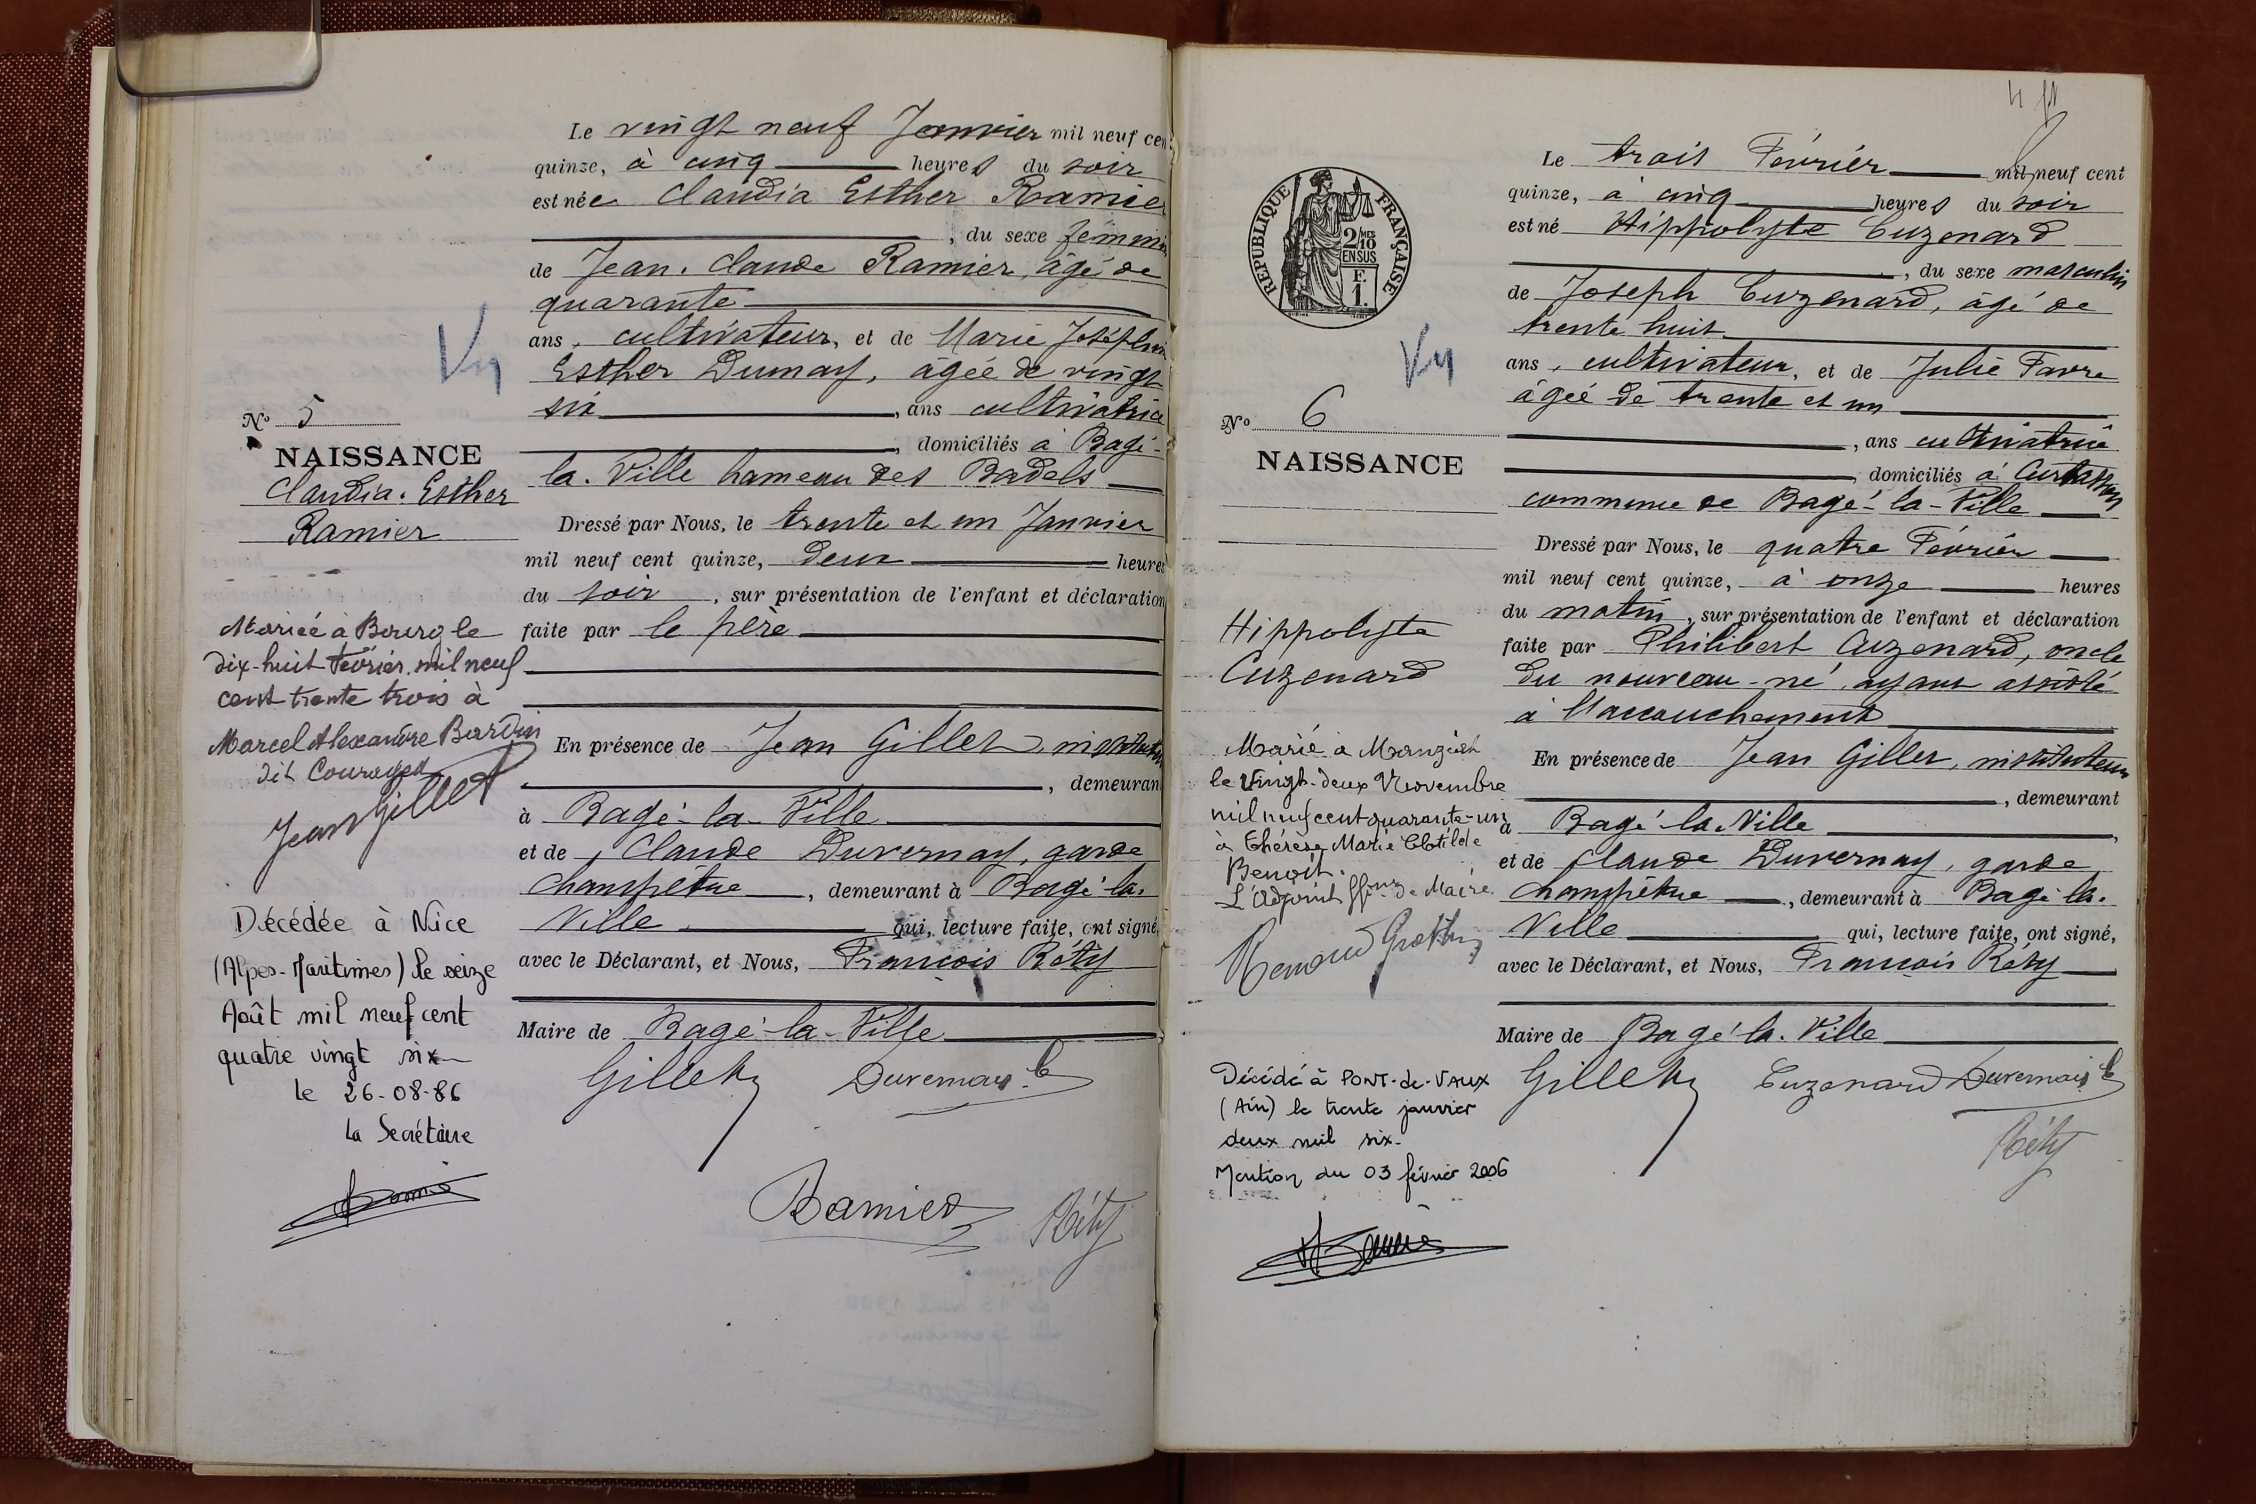 Le vingt neuf Janvier mil neuf cen
quinze, à cinq heures du soir
est née Claudia Esther Ramie
, du sexe féminin
de Jean. Claude Ramier, âgé de
quarante
ans, cultivateur, et de Marie Joséphin
Esther Dumay, âgée de vingt
six, ans cultivatrice
, domiciliés à Bagé-
la-Ville hameau des Badels
Dressé par Nous, le trente et un Janvier
mil neuf cent quinze, deux heures
du soir, sur présentation de l'enfant et déclaration
faite par le père
En présence de Jean Gillet, instituteur
, demeurant
à Bagé-la-Ville
et de Claude Duvernay, garde
champêtre, demeurant à Bagé-la-
Ville qui, lecture faite, ont signé,
avec le Déclarant, et Nous, François Réty
Maire de Bagé-la-Ville
Gillet Duvernay C
Ramier Réty
No 5
NAISSANCE
Claudia. Esther
Ramier
Mariée à Bourg le
dix-huit Février mil neuf
cent trente trois à
Marcel Alexandre Bardin
dit
Jean Gillet
Décédée à Nice
(Alpes-Maritimes) le seize
Août mil neuf cent
quatre vingt six
le 26-08-86
La Secrétaire
4
RÉPUBLIQUE FRANÇAISE
2/10
MES
EN SUS
F.
1.
Le trois Février mil neuf cent
quinze, à cinq heures du soir
est né Hippolyte Cuzenard
, du sexe masculin
de Joseph Cuzenard, âgé de
trente huit
ans, cultivateur, et de Julie Favre
âgée de trente et un
, ans cultivatrice
, domiciliés à
commune de Bagé-la-Ville
Dressé par Nous, le quatre Février
mil neuf cent quinze, à onze heures
du matin, sur présentation de l'enfant et déclaration
faite par Philibert Cuzenard, oncle
du nouveau-né, ayant assisté
à l'accouchement
En présence de Jean Gillet, instituteur
, demeurant
à Bagé-la-Ville,
et de Claude Duvernay, garde
champêtre, demeurant à Bagé-la-
Ville qui, lecture faite, ont signé,
avec le Déclarant, et Nous, François Réty
Maire de Bagé-la-Ville
Gillet Cuzenard Duvernay C
Réty
No 6
NAISSANCE
Hippolyte
Cuzenard
Marié à Manziat
le Vingt-deux Novembre
mil neuf cent quarante-un
à Thérèse Marie Clotilde
Benoît.
L'Adjoint ff de Maire
Décédé à PONT-de-VAUX
(Ain) le trente janvier
deux mil six.
Mention du 03 février 2006